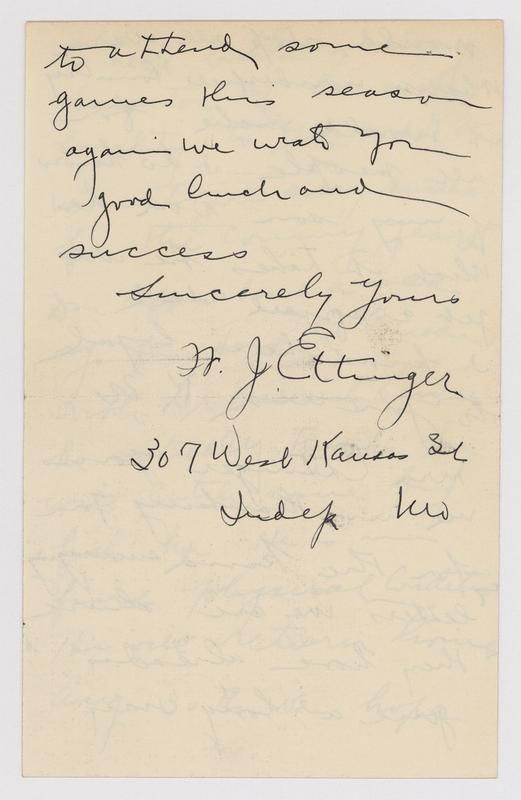 to attend some
games this season
again we wish you
good luck and
success
Sincerely Yours
W. J. Ettinger
307 West Kansas St
Indep Mo